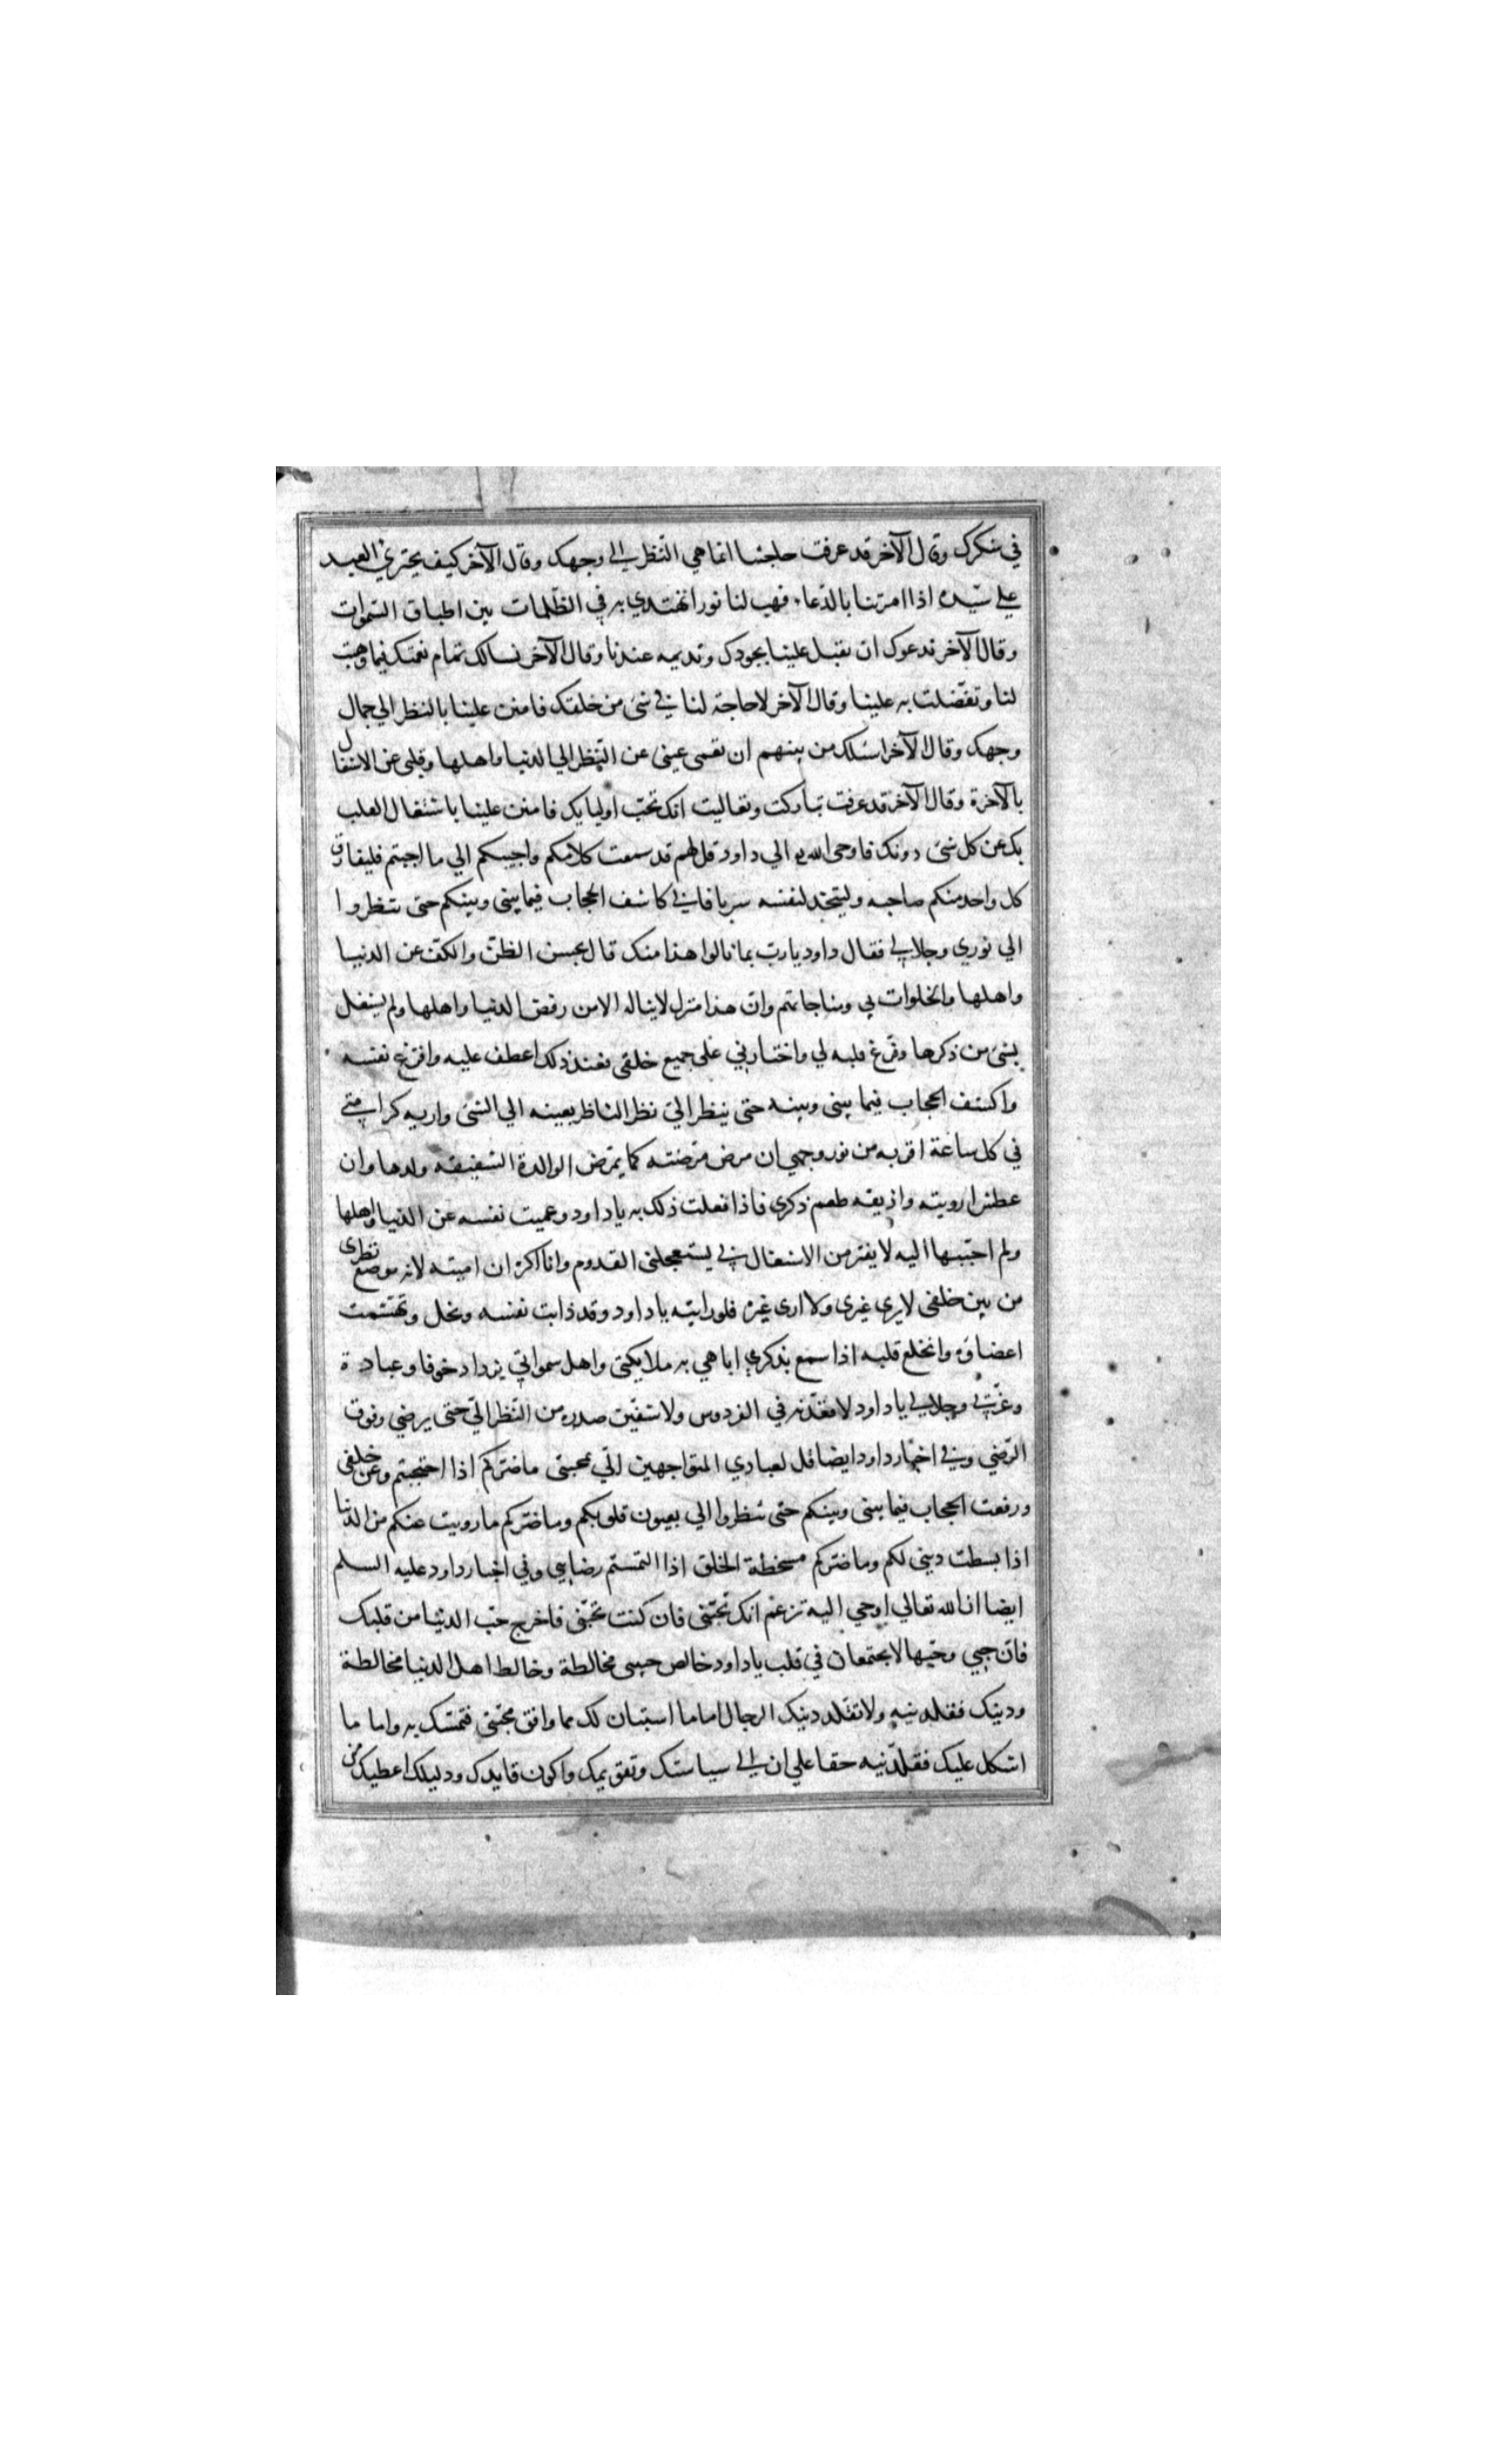 في شكرك وقال الآخر قد عرفت حاجتنا انما هي النّظر الى وجهك وقال الآخر كيف يجتري العبد
على سيّده اذا امرتنا بالدّعاء فهب لنا نورا نهتدي به في الظّلمات بين اطباق السّموات
وقال الآخر ندعوك ان تقبل علينا بجودك وتديمه عندنا وقال الآخر نسالك تمام نعمتك فيما وهبت
لنا وتفضّلت به علينا وقال الآخر لا حاجة لنا في شئ من خلقك فامنن علينا بالنظر الي جمال
وجهك وقال الآخر اسئلك من بينهم ان تعمى عينى عن النّظر الي الدنيا واهلها وقلبى عن الاشتغال
بالآخرة وقال الآخر قد عرفت تباركت وتعاليت انك تحبّ اوليايك فامنن علينا باشتغال القلب
بك عن كل شئ دونك فاوحى الله الي داود قل لهم قد سمعت كلامكم واجيبكم الي ما احببتم فليفارق
كل واحد منكم صاحبه وليتخذ لنفسه سربا فاني كاشف الحجاب فيما بينى وبينكم حتى تنظروا
الي نوري وجلالي فقال داود يا ربّ بما نالوا هذا منك قال بحسن الظنّ والكفّ عن الدنيا
واهلها والخلوات بي ومناجاتهم وانّ هذا منزل لا يناله الا من رفض الدنيا واهلها ولم يشتغل
بشئ من ذكرها وفرّغ قلبه لي واختارني على جميع خلقى فعند ذلك اعطف عليه وافرغ نفسه
واكشف الحجاب فيما بينى وبينه حتى ينظر الىّ نظر الناظر بعينه الي الشئ واريه كرامتي
في كل ساعة اقربه من نور وجهي ان مرض مرّضته كما يمرّض الوالدة الشفيقه ولدها وان
عطش ارويته واذيقه طعم ذكري فاذا فعلت ذلك به يا داود وعميت نفسه عن الدنيا واهلها
ولم احبّبها اليه لا يفتر من الاشتغال بي يستعجلنى القدوم وانا اكره ان اميته لانه موضع نظرى
من بين خلقى لا يرى غيري ولا ارى غيره فلو رايته يا داود وقد ذابت نفسه ونحل وتهشّمت
اعضاؤه وانخلع قلبه اذا سمع بذكري اباهي به ملايكتى واهل سمواتي يزداد خوفا وعبادة
وعزّتي وجلالي يا داود لاقعدنه في الفردوس ولاشفينّ صدره من النّظر الىّ حتى يرضي وفوق
الرّضي وفي اخبار داود ايضا قل لعبادي المتواجهين الىّ بمحبتى ما ضرّكم اذا احتجبتم عن خلقى
ورفعت الحجاب فيما بينى وبينكم حتى تنظروا الي بعيون قلوبكم وما ضرّكم ما زويت عنكم من الدنيا
اذا بسطت دينى لكم وما ضرّكم مسخطة الخلق اذا التمستم رضايي وفي اخبار داود عليه السلم
ايضا ان الله تعالي اوحي اليه تزعم انك تحبّنى فان كنت تحبّنى فاخرج حبّ الدنيا من قلبك
فانّ حبي وحبّها لا يجتمعان في قلب يا داود خالص حبيبى مخالطة وخالط اهل الدنيا مخالطة
ودينك فقلدنيه ولا تقلد دينك الرجال اما ما استبان لك مما وافق محبّتى فتمسّك به واما ما
اشكل عليك فقلّدنيه حقا علي ان الي سياستك وتقويمك واكون قايدك ودليلك اعطيك من